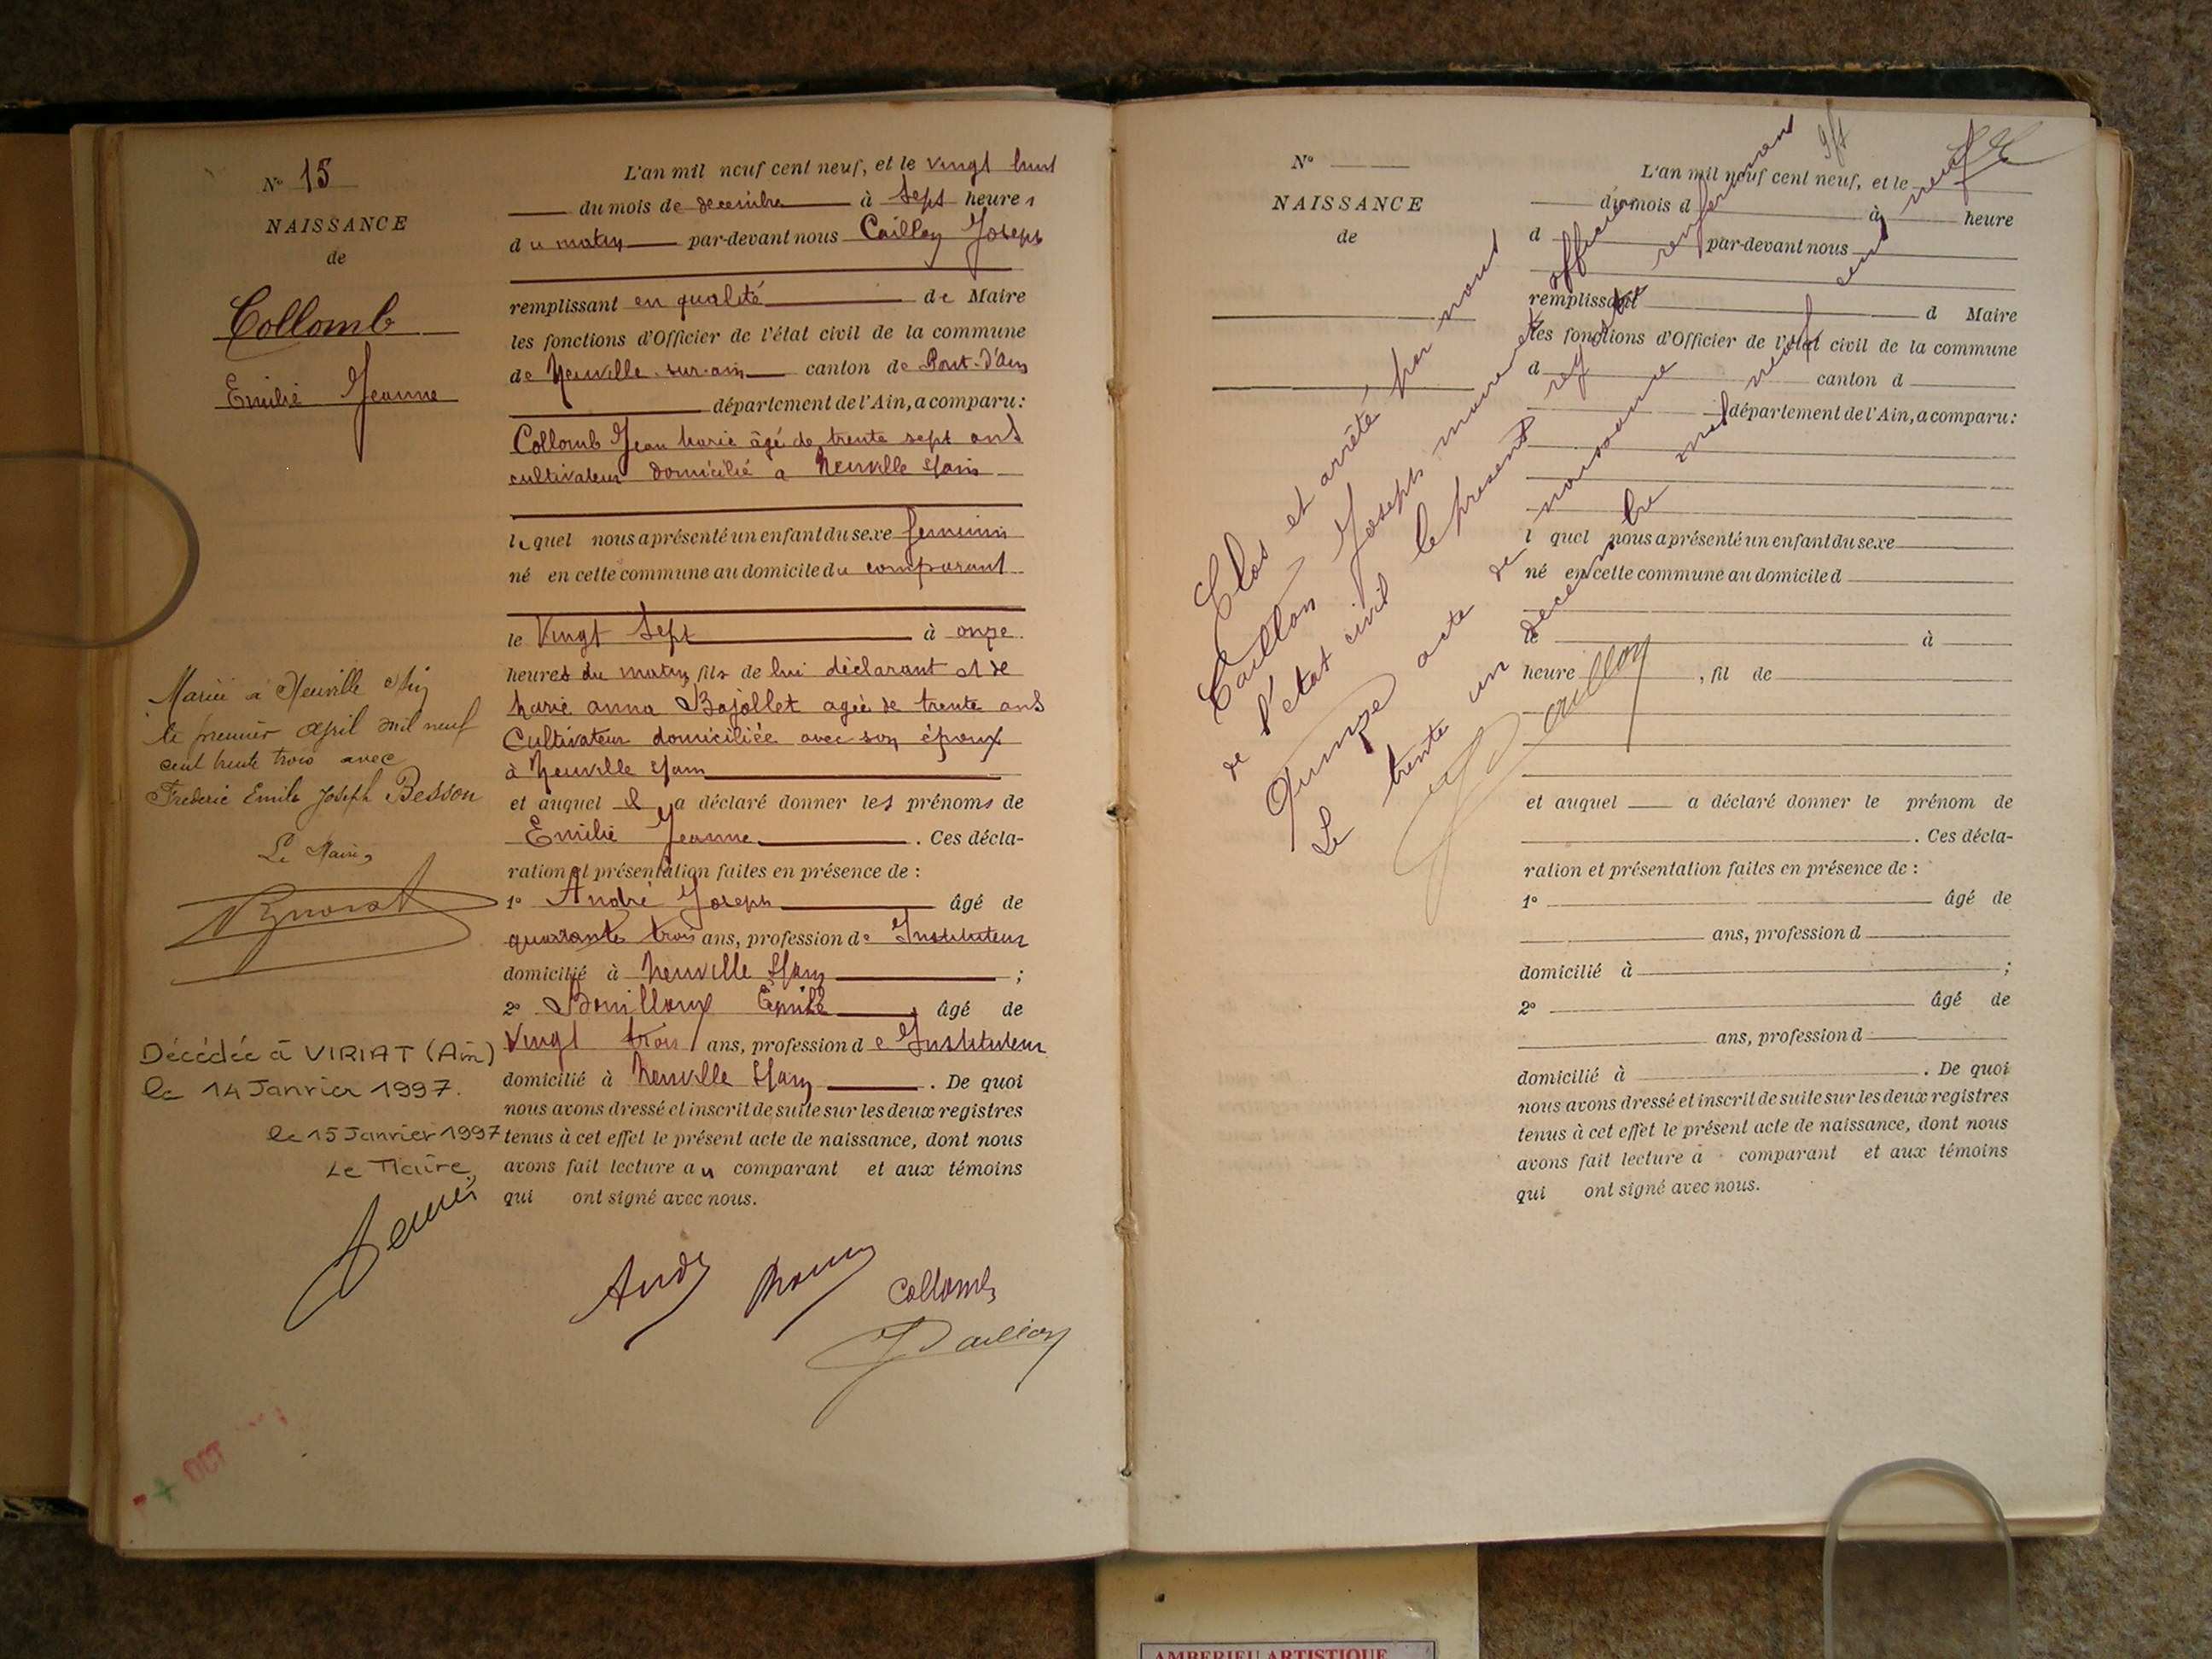 N° 15
NAISSANCE
de
Collomb
Emilie Jeanne
L'an mil neuf cent neuf, et le vingt huit
du mois de décembre à sept heures
du matin par-devant nous Caillon Joseph
remplissant en qualité de Maire
les fonctions d'Officier de l'état civil de la commune
de Neuville-sur-ain canton de Pont-d'Ain
département de l'Ain, a comparu:
Collomb Jean Marie âgé de trente sept ans
cultivateur domicilié a Neuville s/ain
lequel nous a présenté un enfant du sexe feminin
né en cette commune au domicile du comparant
le Vingt Sept à onze
heures du matin, fils de lui déclarant et de
Marie anna Bajollet agée de trente ans
Cultivateur domiciliée avec son époux
à Neuville s/ain
et auquel il a déclaré donner les prénoms de
Emilie Jeanne. Ces décla-
ration et présentation faites en présence de :
1° André Joseph âgé de
quarante trois ans, profession de Instituteur
domicilié à Neuville s/ain ;
2° Bouilloux Emile, âgé de
Vingt trois ans, profession de Instituteur
domicilié à Neuville s/ain. De quoi
nous avons dressé et inscrit de suite sur les deux registres
tenus à cet effet le présent acte de naissance, dont nous
avons fait lecture au comparant et aux témoins
qui ont signé avec nous.
Collomb
JCaillon
Mariée à Neuville s/Ain
le premier April mil neuf
cent trente trois avec
Frederic Emile Joseph Besson
Le Maire,
Décédée à VIRIAT (Ain)
le 14 Janvier 1997.
le 15 Janvier 1997
Le Maire,
OCT
N°
NAISSANCE
de
L'an mil neuf cent neuf, et le
du mois d à heure
d par-devant nous
remplissant d Maire
les fonctions d'Officier de l'état civil de la commune
d canton d
département de l'Ain, a comparu:
l quel nous a présenté un enfant du sexe
né en cette commune au domicile d
le à
heure , fil de
et auquel a déclaré donner le prénom de
. Ces décla-
ration et présentation faites en présence de :
1° âgé de
ans, profession d
domicilié à ;
2° âgé de
ans, profession d
domicilié à . De quoi
nous avons dressé et inscrit de suite sur les deux registres
tenus à cet effet le présent acte de naissance, dont nous
avons fait lecture à comparant et aux témoins
qui ont signé avec nous.
Clos et arrêté par nous
Caillon Joseph maire et officier
de l'état civil le présent registre renfermant
Quinze acte de naissance
Le trente un decembre mil neuf cent neuf
JCaillon
AMBERIEU ARTISTIQUE